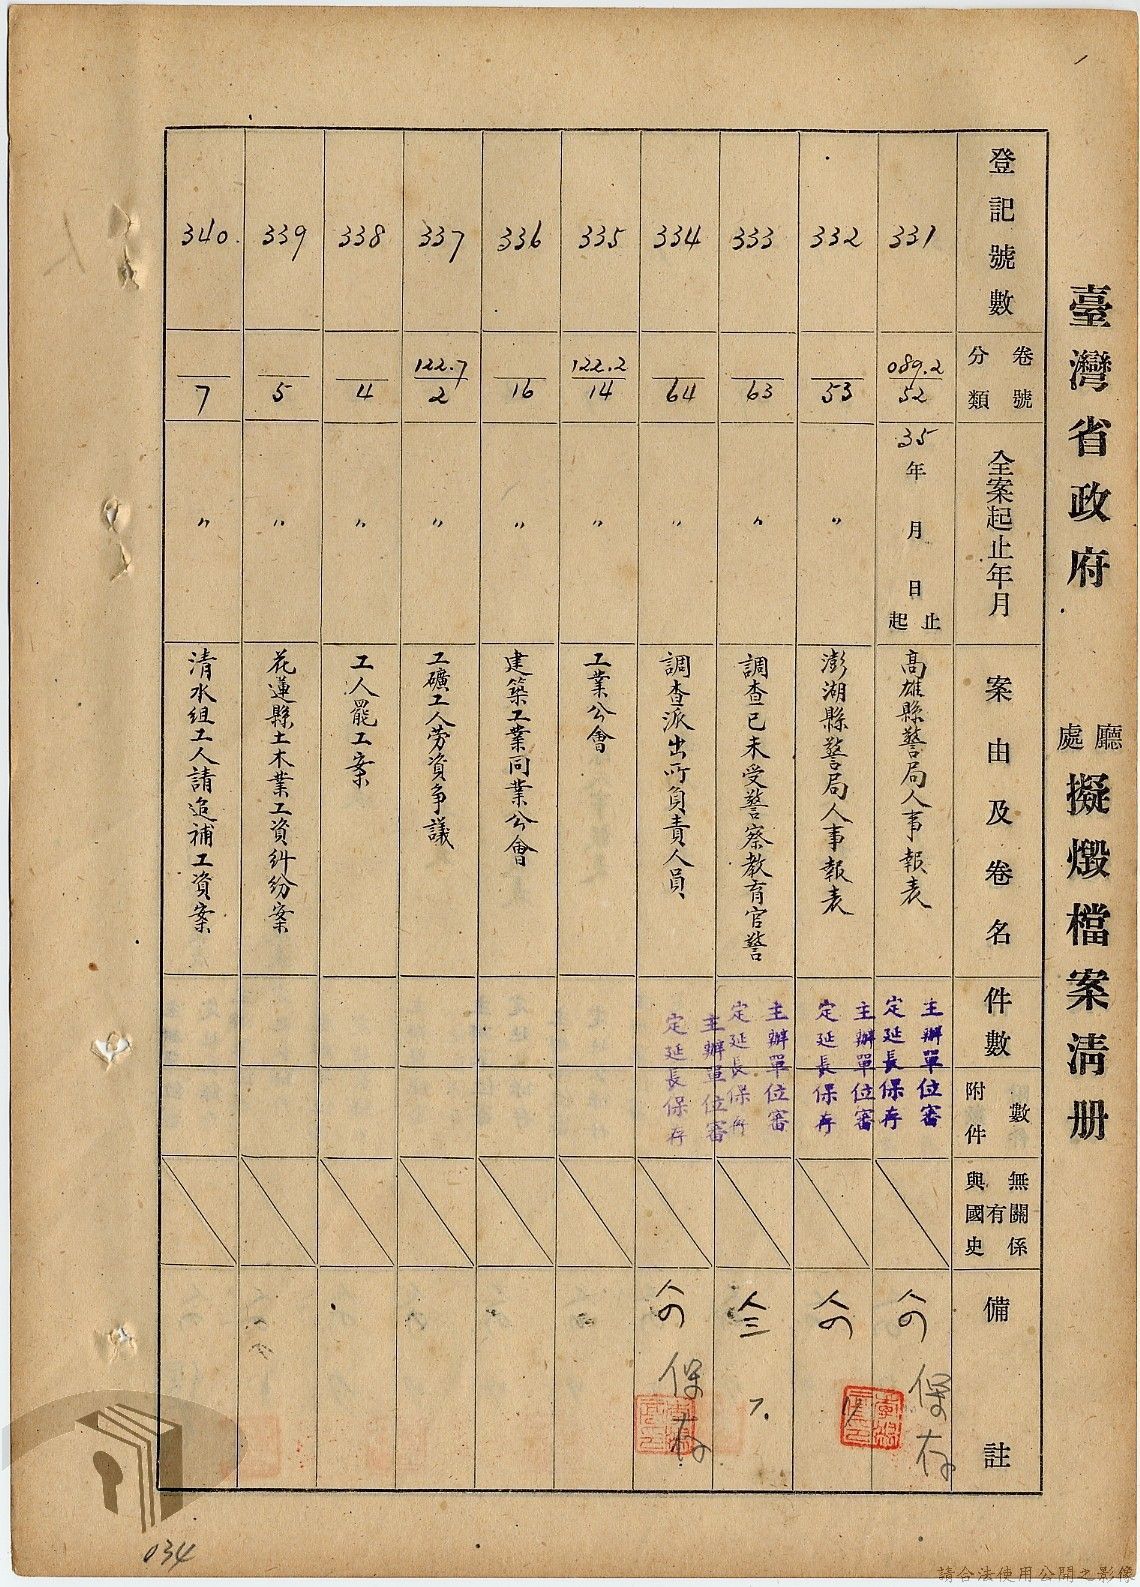 臺灣省政府廳處擬燬檔案清册
登記號數
卷號分類
全案起止年月
案由及卷名
件數
附件數
與國史有無關係
備註
331
089.2
52
35年 月 日起止
高雄縣警局人事報表
主辦單位審定延長保存
保存
332
53
〃
澎湖縣警局人事報表
主辦單位審定延長保存
333
63
〃
調查已未受警察教育官警
主辦單位審定延長保存
334
64
〃
調查派出所負責人員
主辦單位審定延長保存
保存
335
122.2
14
〃
工業公會
336
16
〃
建築工業同業公會
337
122.7
2
〃
工礦工人勞資爭議
338
4
〃
工人罷工案
339
5
〃
花蓮縣土木業工資糾紛案
340.
7
〃
清水組工人請追補工資案
034
請合法使用公開之影像